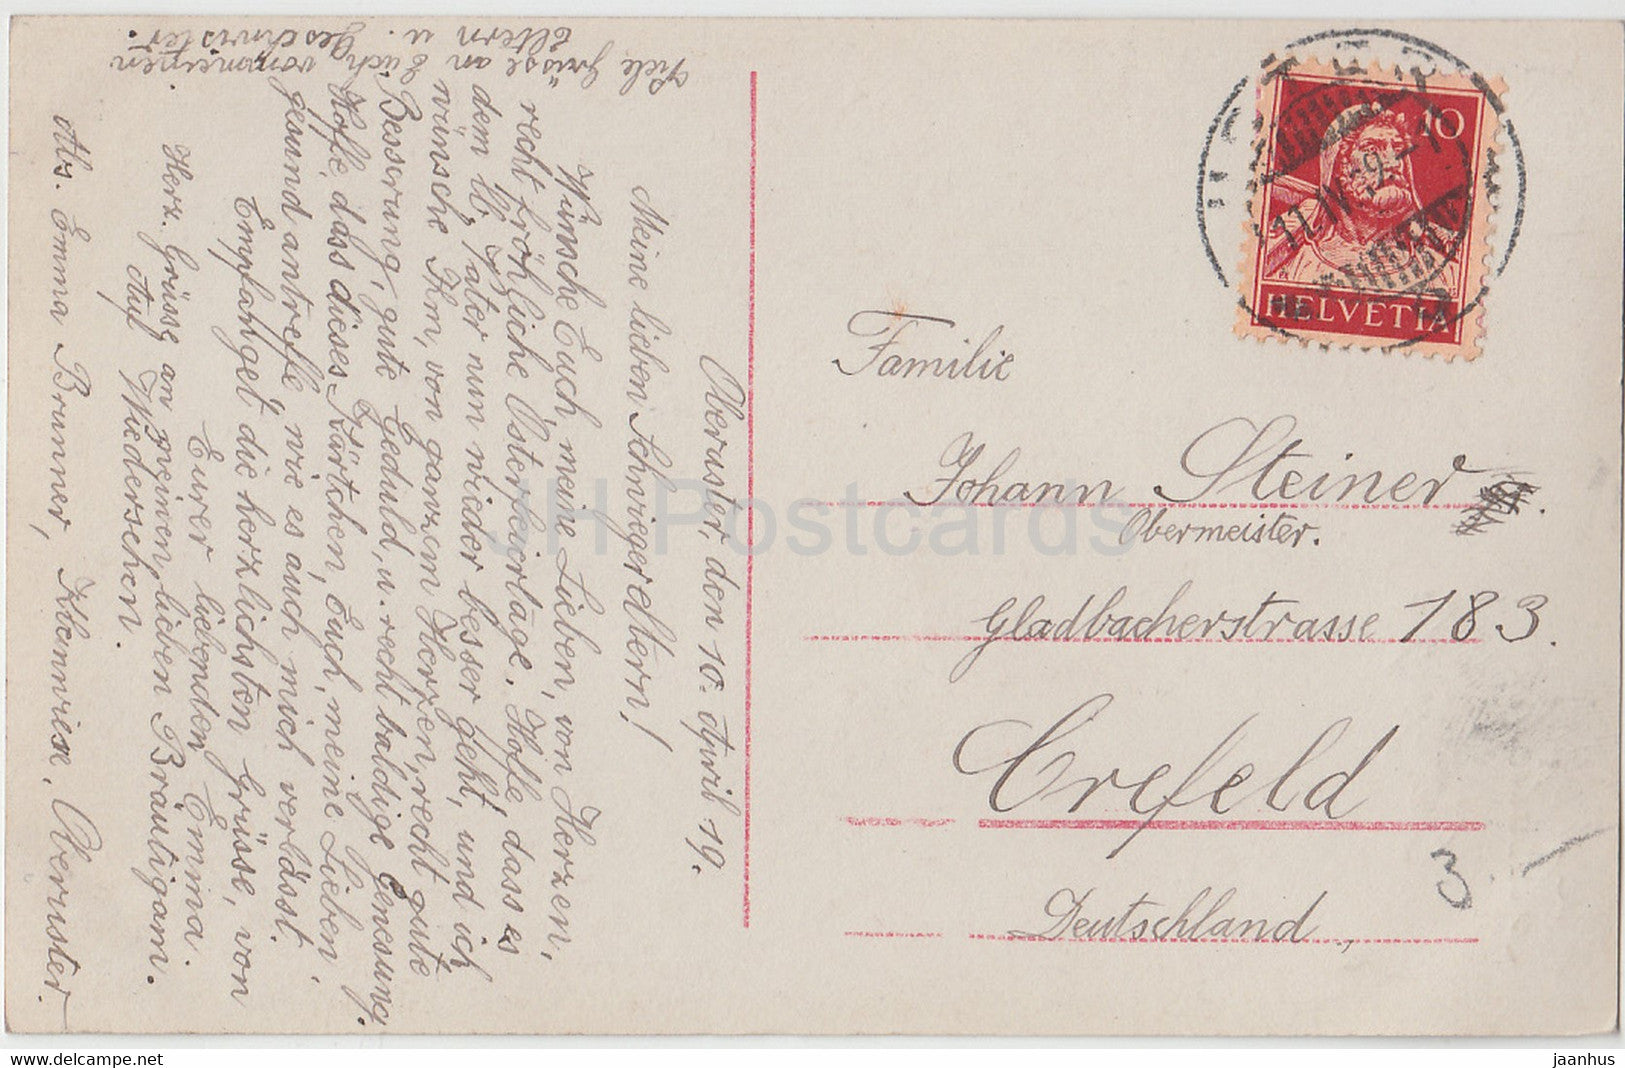 Oberuster, den 10. April 19.
Meine lieben Schwiegereltern!
Wünsche Euch, meine Lieben, von Herzen,
recht fröhliche Osterfeiertage. Hoffe, dass es
dem lb. Vater nun wieder besser geht, und ich
wünsche Ihm, von ganzem Herzen, recht gute
Besserung, gute Geduld, u. recht baldige Genesung.
Hoffe, dass dieses Kärtchen, Euch, meine Lieben
gesund antreffe, wie es auch mich verlässt.
Empfanget die herzlichsten Grüsse, von
Eurer liebenden Emma.
Herz. Grüsse an meinen, lieben Bräutigam.
Auf Wiedersehen.
Abs. Emma Brunner, Oberuster.
Viele Grüsse an Euch von meinen
Eltern u. Geschwister.
10
HELVETIA
11. IV. 19.-11
Familie
Johann Steiner.
Obermeister.
Gladbacherstrasse 183.
Crefeld
Deutschland.
3.-
JH Postcards
delcampe.net
jaanhus